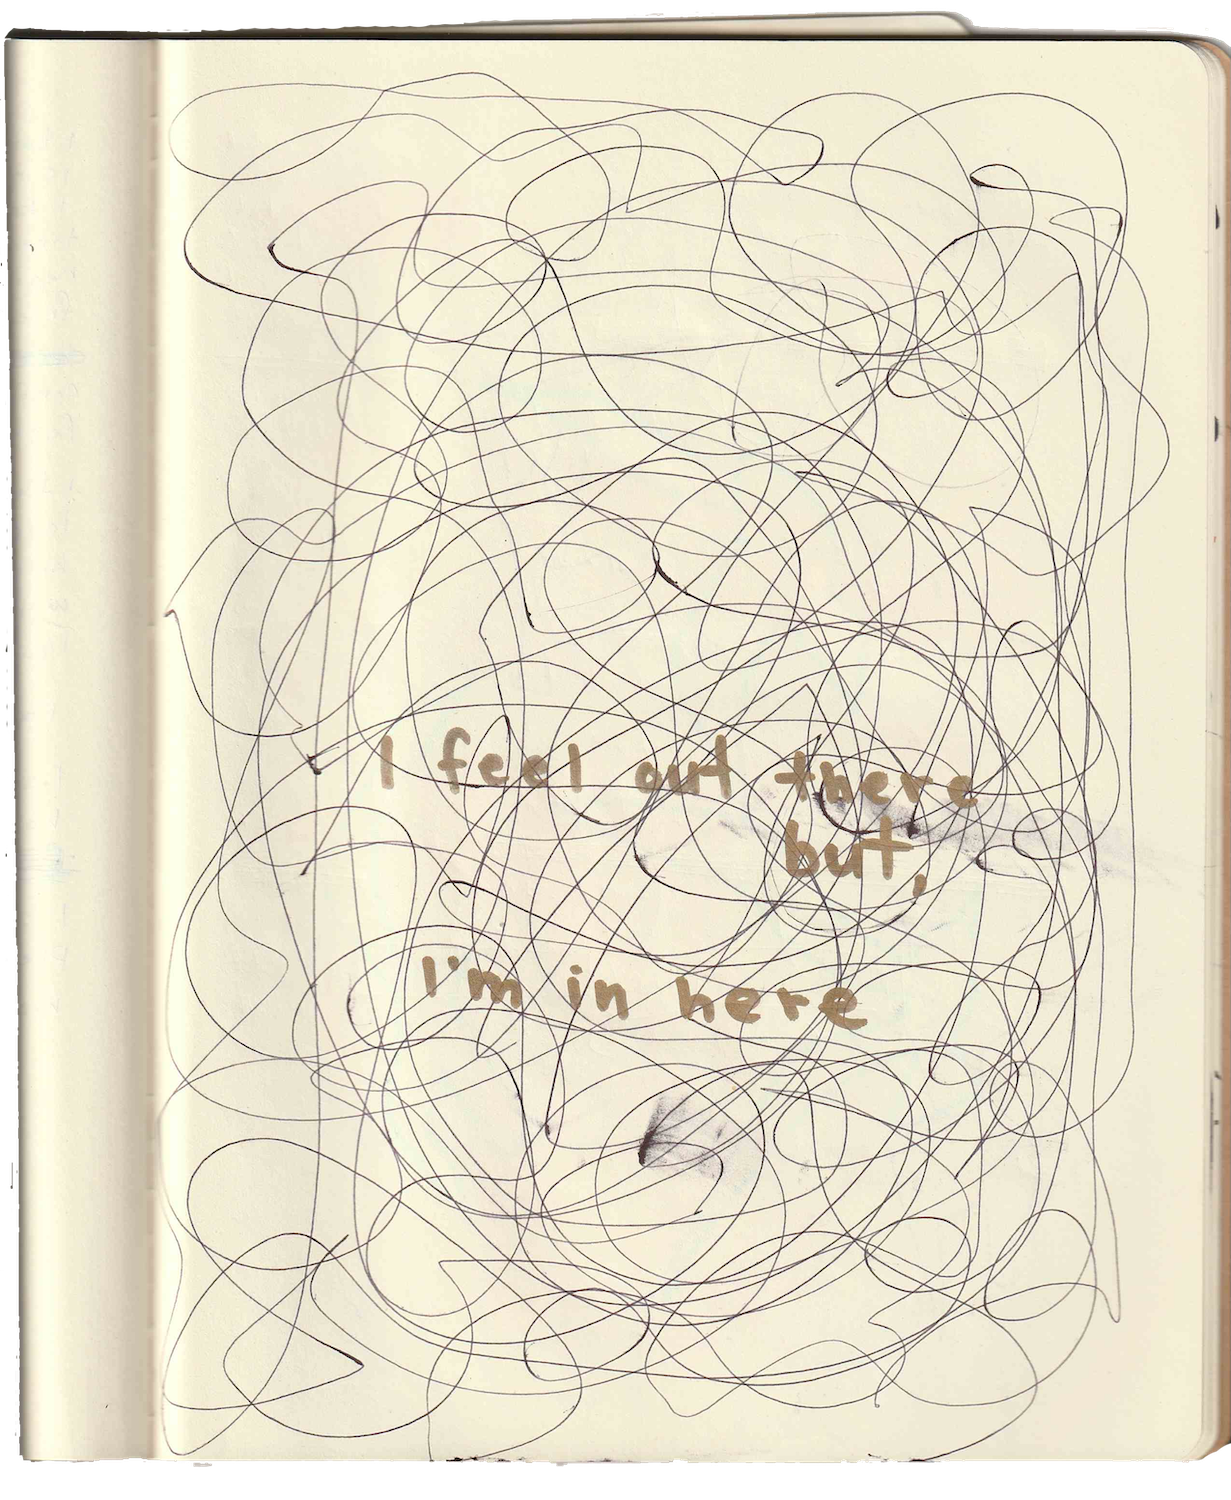 I feel out there
but,
I'm in here